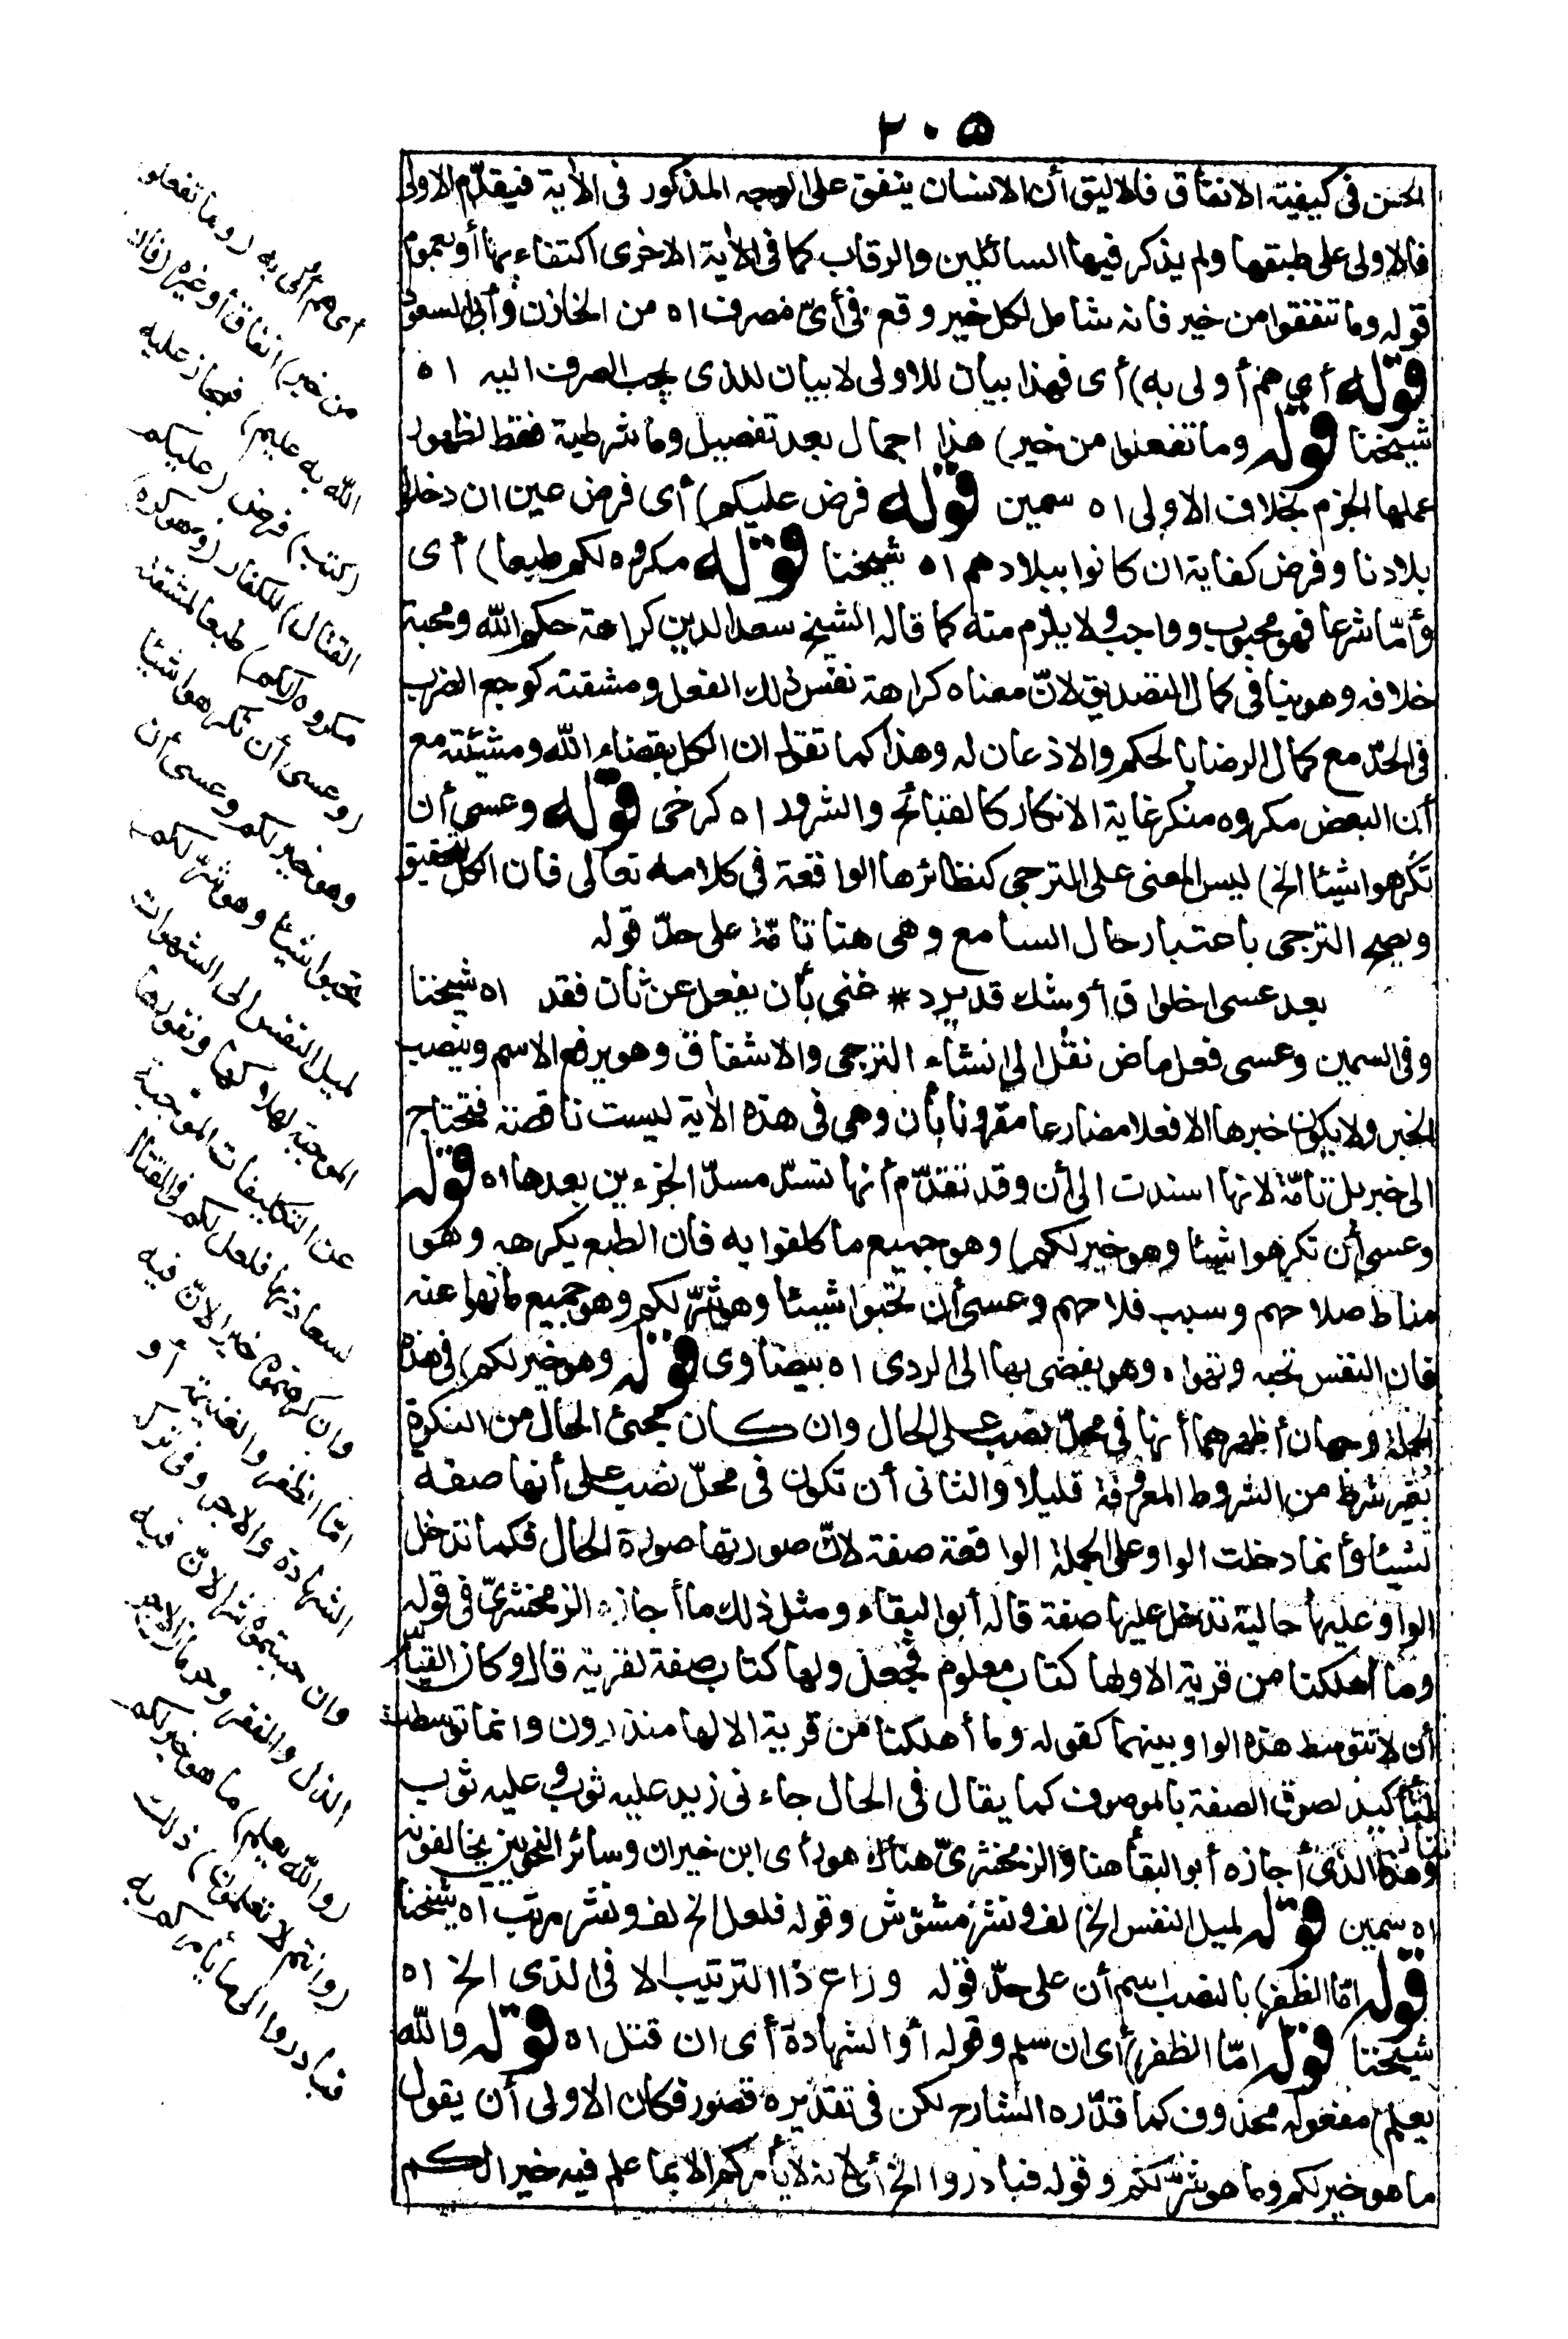 ٢٠٥
الحسن فى كيفية الانفاق فالاليق أن الانسان ينفق على الوجه المذكور فى الآية فيقدّم الاولى
فالاولى على طبقها ولم يذكر فيها السائلين والرقاب كما فى الآية الاخرى اكتفاء بها أو بعموم
قوله وما تنفقوا من خير فانه شامل لكل خير وقع فى أىّ مصرف اه من الخازن وأبى السعود
قوله أى هم أولى به) أى فهذا بيان للاولى لا بيان للذى يجب الصرف اليه اه
شيخنا قوله وما تفعلوا من خير) هذا اجمال بعد تفصيل وما شرطية فقط لظهور
عملها الجزم بخلاف الاولى اه سمين قوله فرض عليكم) أى فرض عين ان دخلوا
بلادنا وفرض كفاية ان كانوا ببلادهم اه شيخنا قوله مكروه لكم طبعا) أى
وأمّا شرعا فهو محبوب وواجب ولا يلزم منه كما قاله الشيخ سعد الدين كراهة حكم الله ومحبة
خلافه وهو ينافى كمال التصديق لانّ معناه كراهة نفس ذلك الفعل ومشقته كوجع الضرب
فى الحدّ مع كمال الرضا بالحكم والاذعان له وهذا كما تقول ان الكل بقضاء الله ومشيئته مع
أن البعض مكروه منكر غاية الانكار كالقبائح والشرور اه كرخى قوله وعسى أن
تكرهوا شيئا الخ) ليس المعنى على الترجى كنظائرها الواقعة فى كلامه تعالى فان الكل للتحقيق
ويصح الترجى باعتبار حال السامع وهى هنا تامّة على حدّ قوله
بعد عسى اخلولق أوشك قد يرد * غنى بأن يفعل عن ثان فقد اه شيخنا
وفى السمين وعسى فعل ماض نقل الى انشاء الترجى والاشفاق وهو يرفع الاسم وينصب
الخبر ولا يكون خبرها الا فعلا مضارعا مقرونا بأن وهى فى هذه الآية ليست ناقصة فتحتاج
الى خبر بل تامّة لانها اسندت الى أن وقد تقدّم أنها تسدّ مسدّ الجزءين بعدها اه قوله
وعسى أن تكرهوا شيئا وهو خير لكم) وهو جميع ما كلفوا به فان الطبع يكرهه وهو
مناط صلاحهم وسبب فلاحهم وعسى أن تحبوا شيئا وهو شرّ لكم وهو جميع ما نهوا عنه
فان النفس تحبه وتهواه وهو يفضى بها الى الردى اه بيضاوى قوله وهو خير لكم) فى هذه
الجملة وجهان أظهرهما أنها فى محلّ نصب على الحال وان كان مجىء الحال من النكرة
بغير شرط من الشروط المعروفة قليلا والثانى أن تكون فى محلّ نصب على أنها صفة
لشيئا وانما دخلت الواو على الجملة الواقعة صفة لانّ صورتها صورة الحال فكما تدخل
الواو عليها حالية تدخل عليها صفة قاله أبو البقاء ومثل ذلك ما أجازه الزمخشرىّ فى قوله
وما أهلكنا من قرية الا ولها كتاب معلوم فجعل ولها كتاب صفة لقرية قال وكان القياس
أن لا تتوسط هذه الواو بينهما كقوله وما أهلكنا من قرية الا لها منذرون وانما توسطت
لتأكيد لصوق الصفة بالموصوف كما يقال فى الحال جاءنى زيد عليه ثوب وعليه ثوب
وهذا الذى أجازه أبو البقاء هنا والزمخشرىّ هناك هو رأى ابن خيران وسائر النحويين يخالفونه
اه سمين قوله لميل النفس الخ) لف ونشر مشوّش وقوله فلعل الخ لف ونشر مرتب اه شيخنا
قوله امّا الظفر) بالنصب اسم أن على حدّ قوله وراع ذا الترتيب الا فى الذى الخ اه
شيخنا قوله امّا الظفر) أى ان سلم وقوله أو الشهادة أى ان قتل اه قوله والله
يعلم) مفعوله محذوف كما قدّره الشارح لكن فى تقديره قصور فكان الاولى أن يقول
ما هو خير لكم وما هو شرّ لكم وقوله فبادروا الخ أى لانه لا يأمركم الا بما علم فيه خيرا لكم
أى هم أولى به (وما تفعلوا
من خير) انفاق أو غيره (فان
الله به عليم) فمجاز عليه
(كتب) فرض (عليكم
القتال) للكفار (وهو كره)
مكروه (لكم) طبعا لمشقته
(وعسى أن تكرهوا شيئا
وهو خير لكم وعسى أن
تحبوا شيئا وهو شرّ لكم)
لميل النفس الى الشهوات
الموجبة لهلاكها ونفورها
عن التكليفات الموجبة
لسعادتها فلعل لكم فى القتال
وان كرهتموه خيرا لانّ فيه
امّا الظفر والغنيمة أو
الشهادة والاجر وفى تركه
وان حببتموه شرا لانّ فيه
الذل والفقر وحرمان الاجر
(والله يعلم) ما هو خير لكم
(وانتم لا تعلمون) ذلك
فبادروا الى ما يأمركم به